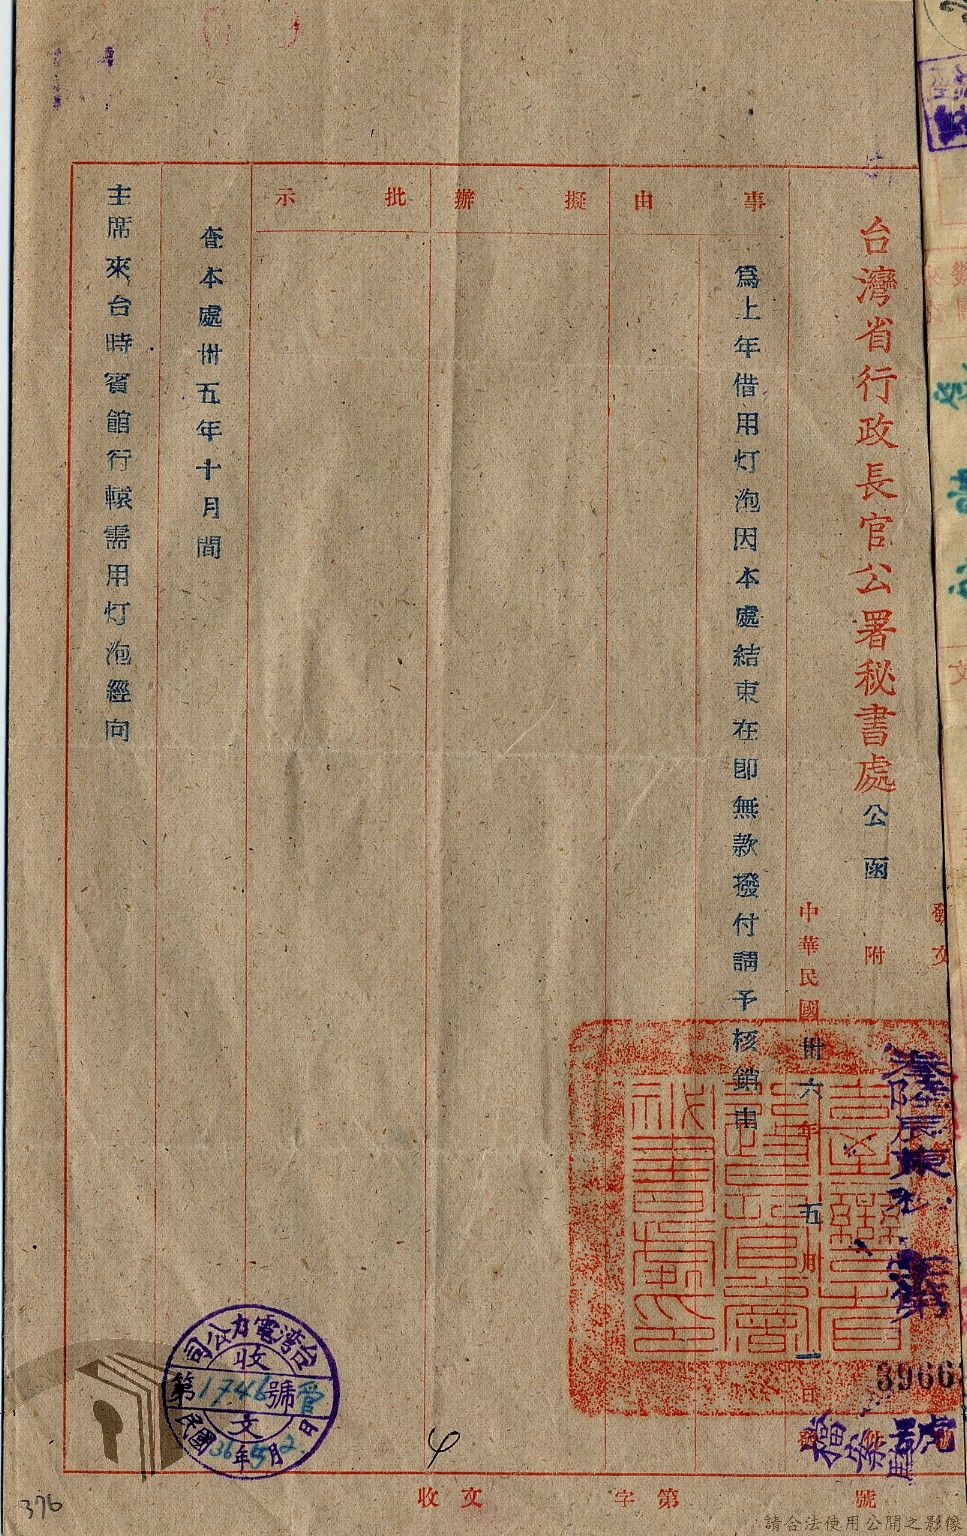 台灣省行政長官公署秘書處公函
發文
附
中華民國卅六年五月一日
事由
為上年借用灯泡因本處結束在即無款撥付請予核銷由
擬辦
批示
查本處卅五年十月間
主席來台時賓館行轅需用灯泡經向
台灣電力公司
收
第1746號
文
民國36年5月2日
39663
號
收文
字第
號
376
請合法使用公開之影像